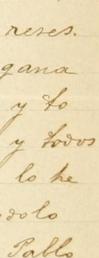 reses.
gana
y to
y todos
lo he
dolo
Pablo